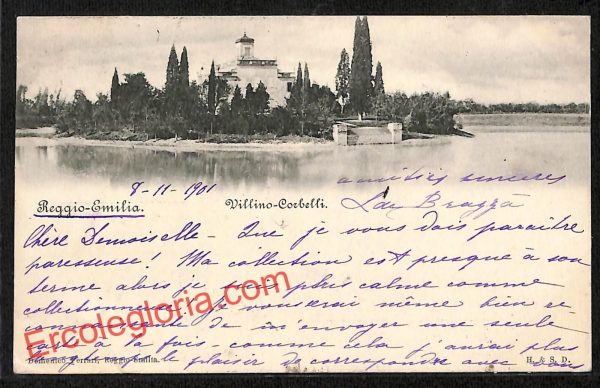 amitiés sincères
8-11-901
Reggio-Emilia.
Villino-Corbelli.
Ida Bragzà
Chère Demoiselle - Que je vous dois paraître
paresseuse! Ma collection est presque à son
terme alors je suis plus calme comme
collectionneuse. Je vous serai même bien re-
connaissante de m'envoyer une seule
carte à la fois - comme cela j'aurai plus
le plaisir de correspondre avec vous
Ercolegloria.com
Domenico Ferrari, Reggio-Emilia.
H. & S. D.